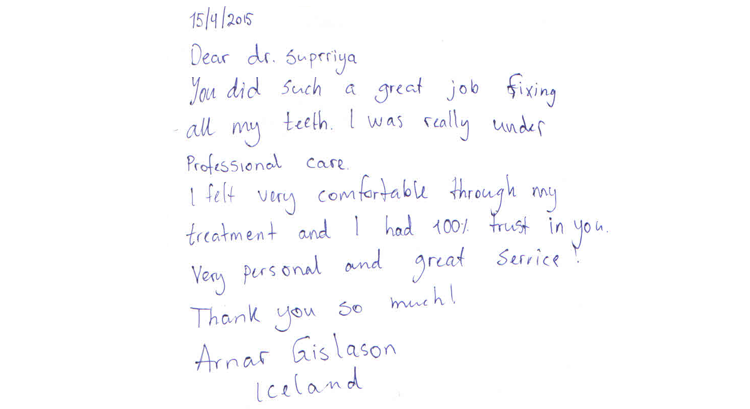 15/4/2015
Dear dr. Suprriya
You did such a great job fixing
all my teeth. I was really under
Professional care.
I felt very comfortable through my
treatment and I had 100% trust in you.
Very personal and great service!
Thank you so much!
Arnar Gislason
Iceland